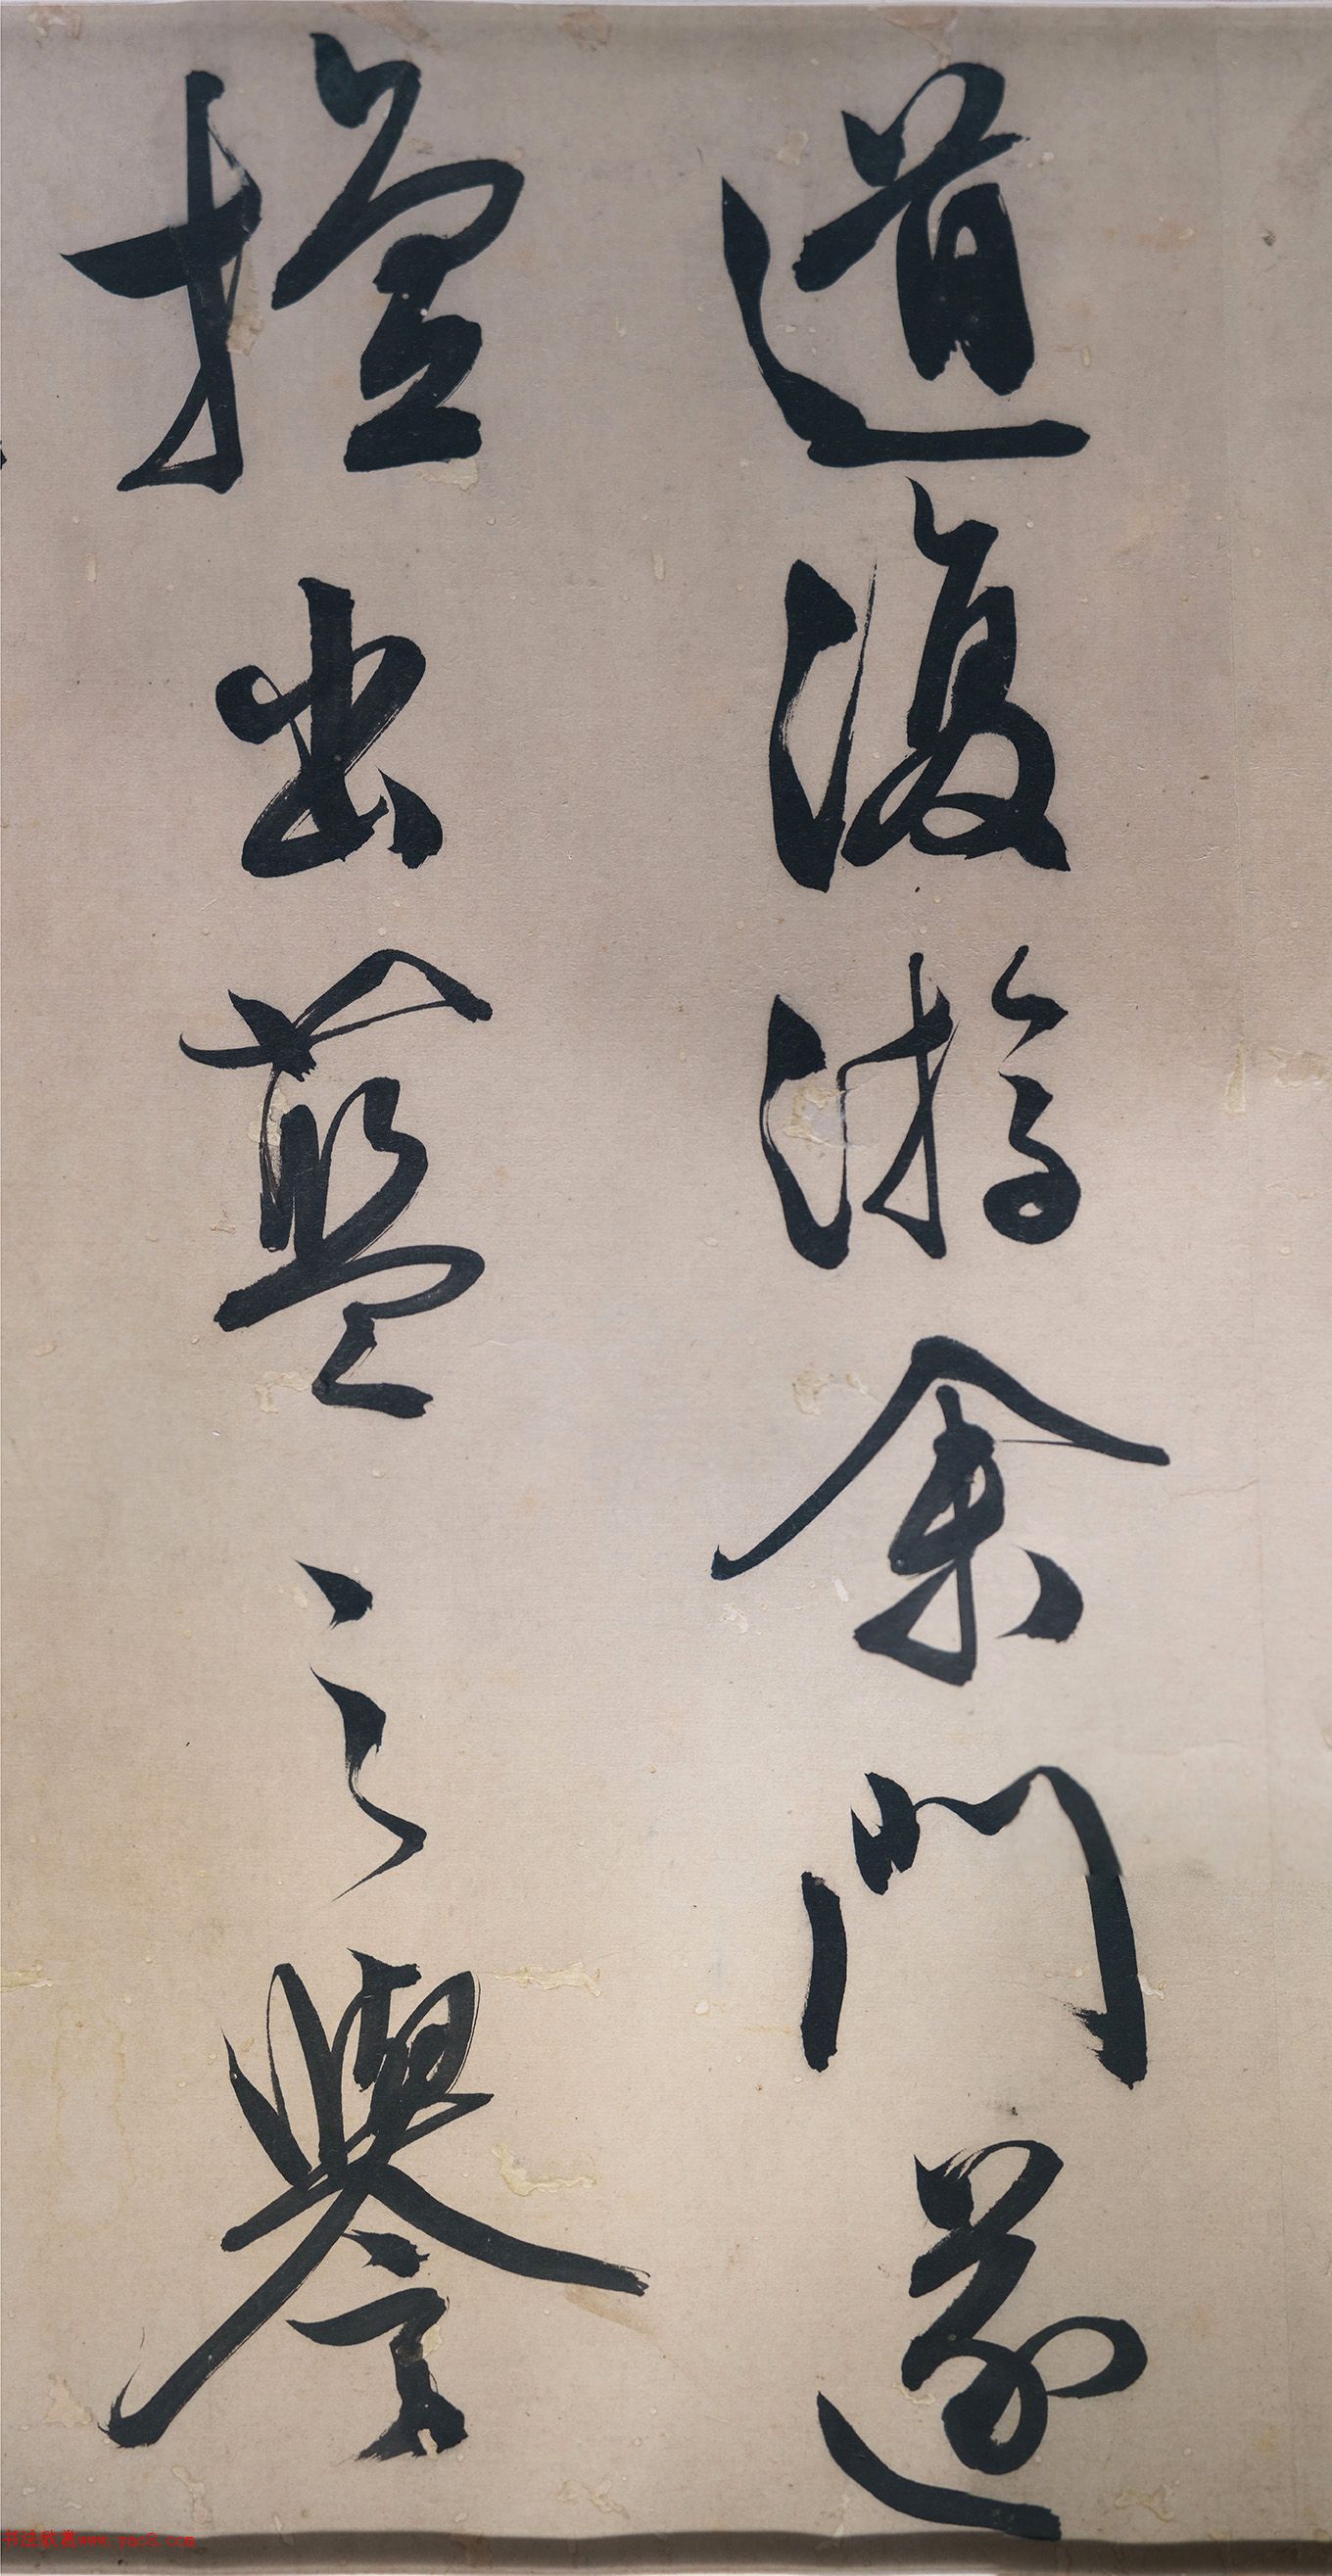 道復游余門遂
擅出藍之譽
书法欣赏www.yac8.com